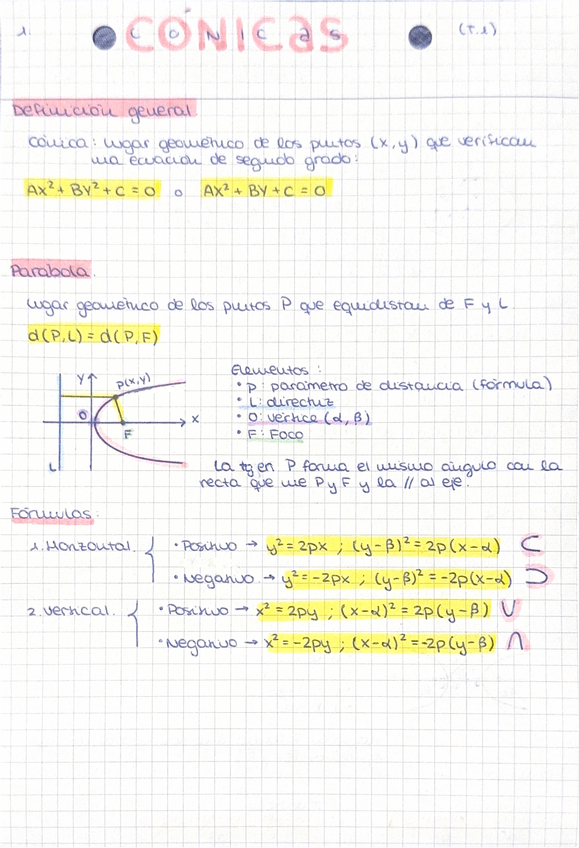 1. CÓNICAS (T.1)
CONICAS
Definición general
cónica: lugar geométrico de los puntos (x,y) que verifican
una ecuación de segundo grado:
AX² + BY² + C = 0 o AX² + BY + C = 0
Parabola.
lugar geométrico de los puntos P que equidistan de F y L.
d(P,L) = d(P,F)
Y P(x,y)
O X
F
L
Elementos:
• P: parámetro de distancia (fórmula)
• L: directriz
• O: vértice (α, β)
• F: Foco
La tg en P forma el mismo ángulo con la
recta que une P y F y la // al eje.
Fórmulas:
1. Horizontal. { • Positivo → y² = 2px ; (y-β)² = 2p(x-α) ⊂
• Negativo → y² = -2px ; (y-β)² = -2p(x-α) ⊃
2. vertical. { • Positivo → x² = 2py ; (x-α)² = 2p(y-β) ∪
• Negativo → x² = -2py ; (x-α)² = -2p(y-β) ∩